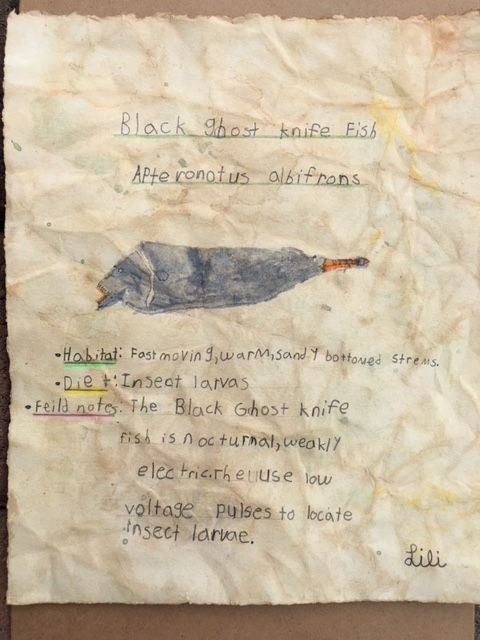 Black ghost knife Fish
APteronotus albifrons
•Habitat: Fast moving, warm, sandy bottomed strems.
•Diet: Insect larvas
•Feild notes: The Black Ghost knife
fish is nocturnal, weakly
electric. They use low
voltage pulses to locate
insect larvae.
Lili